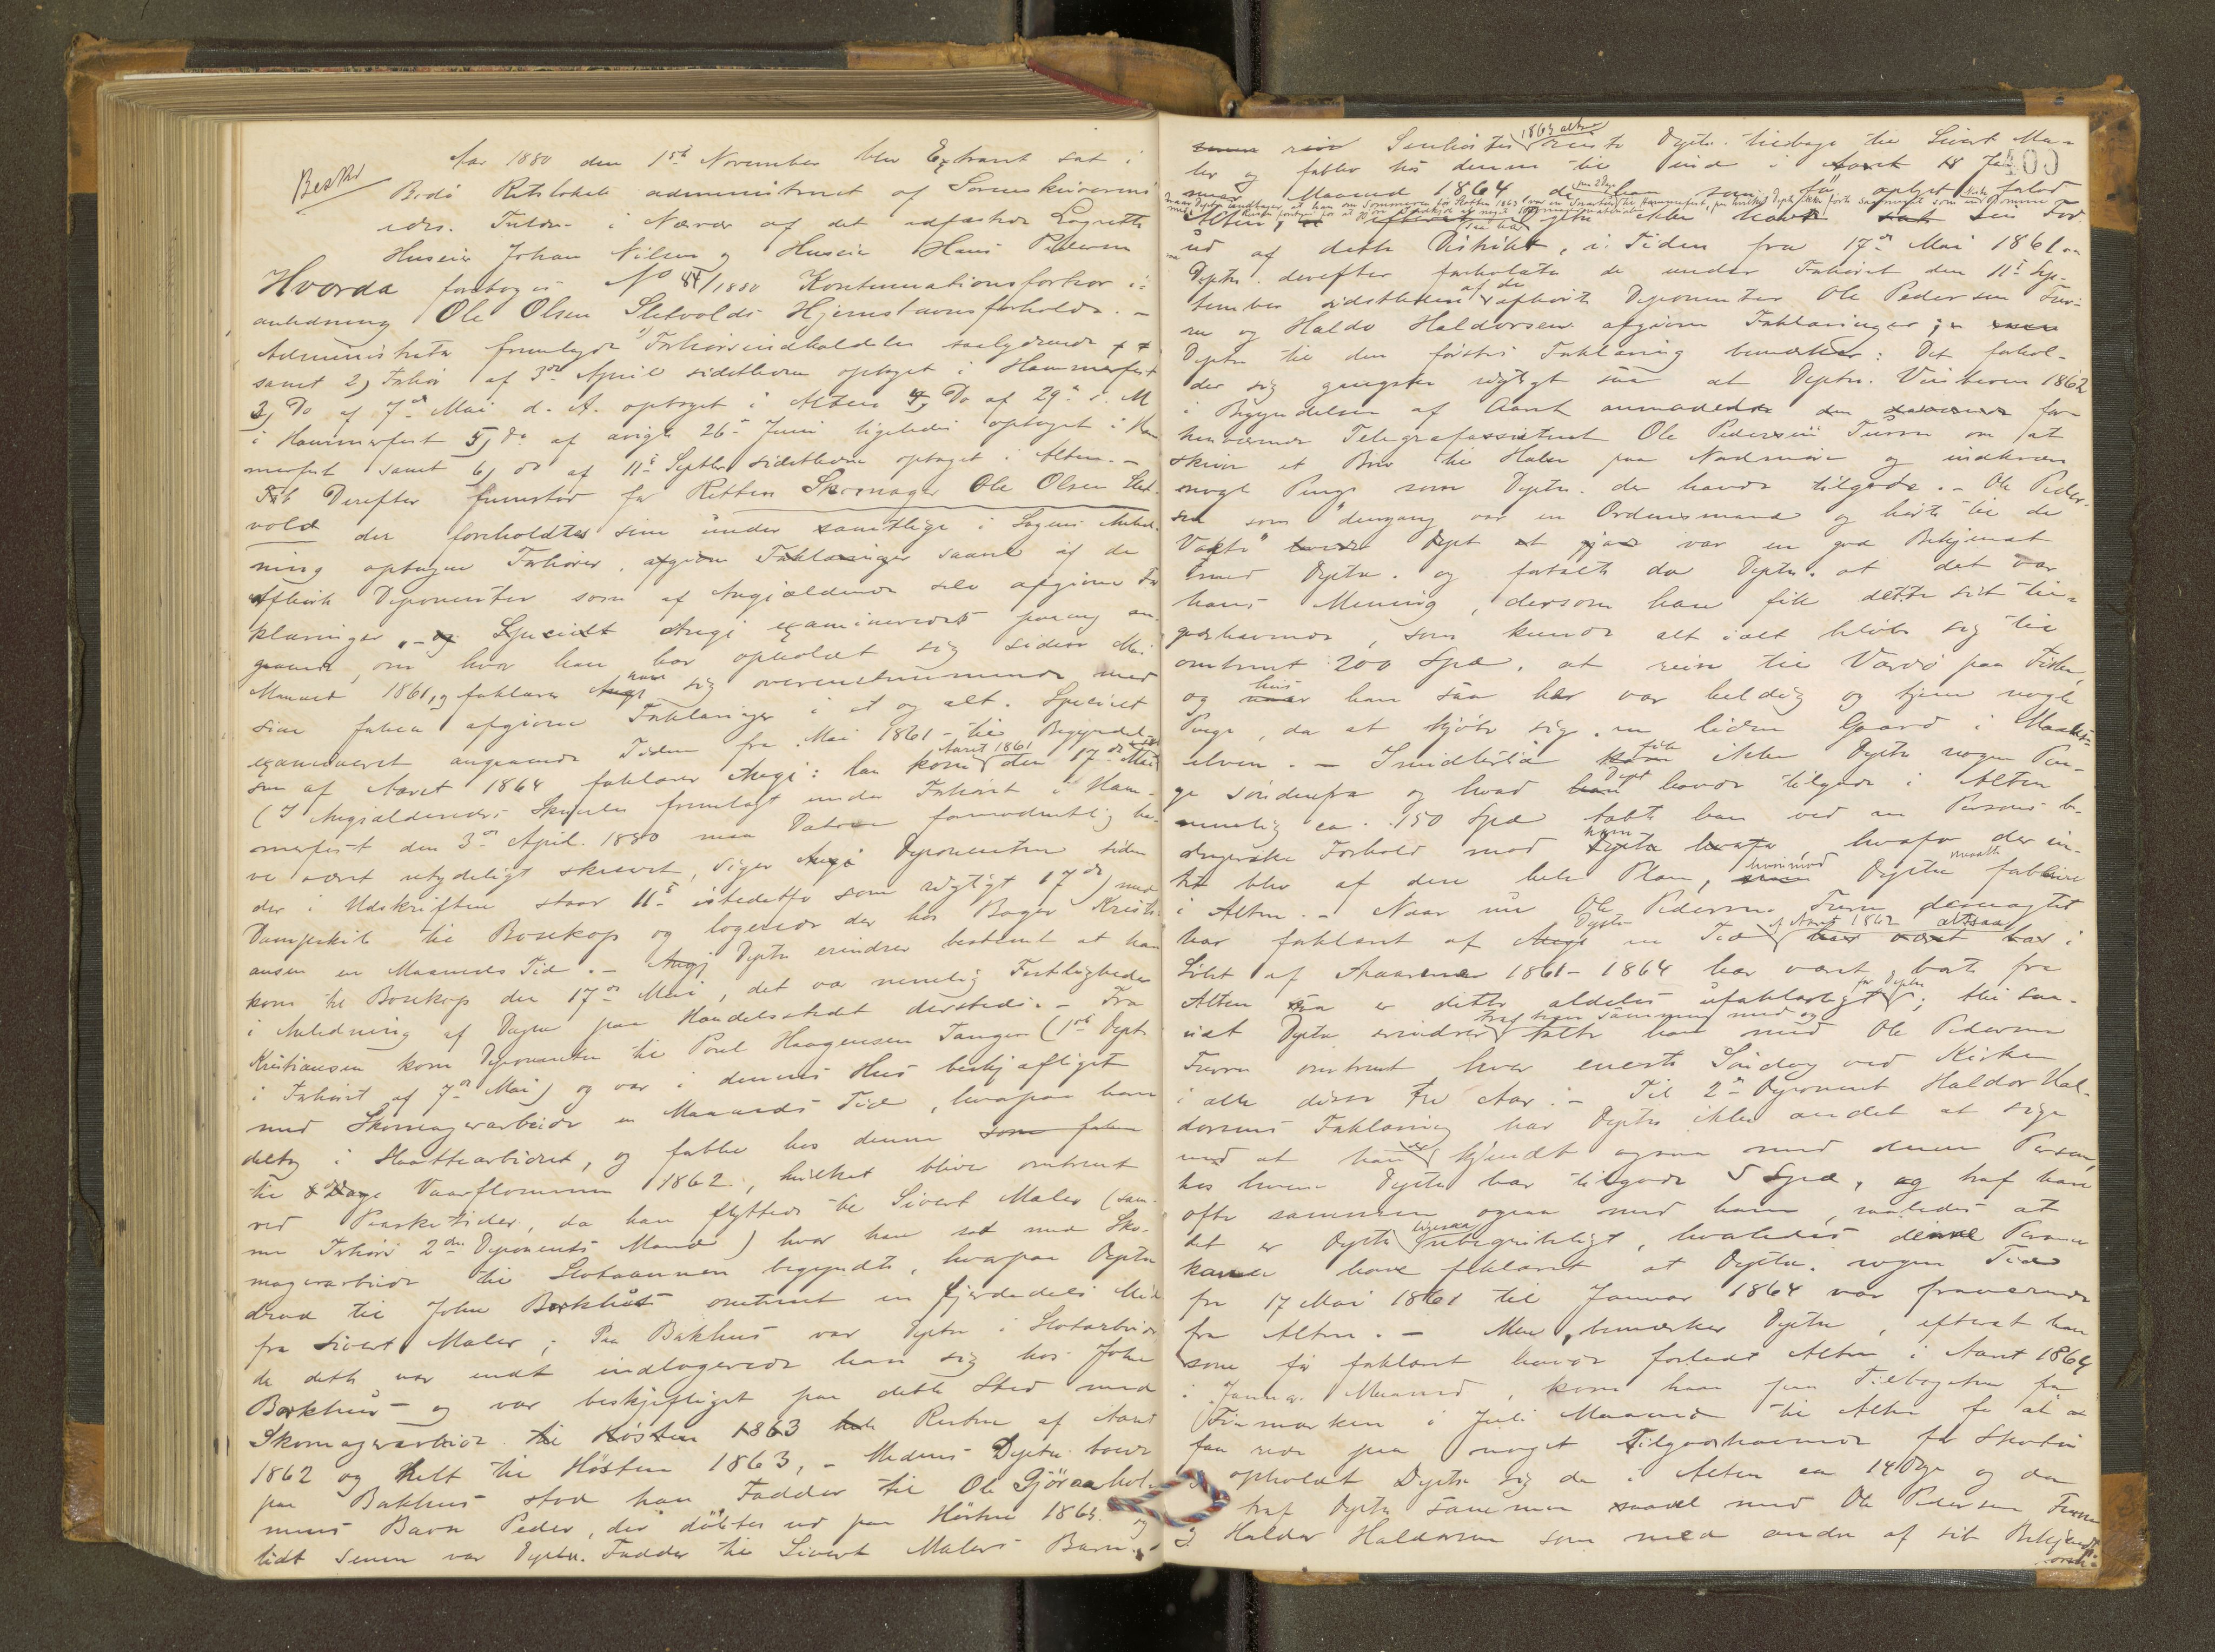 Beskr
Aar 1880 den 1ste November blev Extraret sat i
Bodö Retslokale administreret af Sorenskriverens
edsv. Fuldm. i Nærvær af det edfæstede Lagrette
Huseier Johan Nilsen og Huseier Hans Pedersen
Hvorda foretoges No 84/1880 Kontinuationsforhør i
anledning Ole Olsen Sletvolds Hjemstavnsforholde. -
Administrator fremlagde 1) Forhørsindkaldelse saalydende ++
samt 2) Forhør af 3die April sidstleden optaget i Hammerfest
3) Do af 7de Mai d. A. optaget i Alten 4) Do af 29de s. M
i Hammerfest 5) do af 26de Juni ligeledes optaget i Ham
merfest samt 6) do af 11te Septbr sidstleden optaget i Alten. -
Derefter fremstod for Retten Skomager Ole Olsen Slet-
vold der foreholdtes sine under samtlige i Sagens Anled-
ning optagne Forhører afgivne Forklaringer saavel af de
afhørte Deponenter som af Angjældende selv afgivne For
klaringer, - Specielt Angj examineredes paany an-
gaaende, om hvor han har opholdt sig siden Mai
Maaned 1861, og forklarer han sig overensstemmende med
sine førhen afgivne Forklaringer i et og alt. Specielt
examineret angaaende Tiden fra Mai 1861 - til Begyndel-
sen af Aaret 1864 forklarer Angj: han kom Aaret 1861 den 17de Mai
(I Angjældendes Skrivelse fremlagt under Forhøret i Ham-
merfest den 3die April 1880 maa Datoen formodentlig ha-
ve været utydeligt skrevet, siger Angj Deponenten siden
der i Udskriften staar 11te istedetfor som rigtigt 17de) med
Dampskib til Bosekop og logerede der hos Bager Kristi-
ansen en Maaneds Tid. - Deptn erindrer bestemt at han
kom til Bosekop den 17de Mai, det var nemlig Festligheder
i Anledning af Dagen paa Handelsstedet dersteds. - Fra
Kristiansen kom Deponenten til Poul Haagensen Tangen (1ste Dept
i Forhøret af 7de Mai) og var i dennes Hus beskjæftiget
med Skomagerarbeide en Maaneds Tid, hvorpaa han
deltog i Slaattearbeidet, og forblev hos denne
til Vaarflommen 1862, hvilket blive omtrent
ved Paasketider, da han flyttede til Sivert Maler (sam-
me Forhørs 2den Deponents Mand) hvor han sad med Sko-
magerarbeide til Slotaannen begyndte, hvorpaa Deptn
drog til John Bakhus omtrent en fjerdedels Mil
fra Sivert Maler; Paa Bakhus var Deptn i Slotarbeide
da dette var endt indlogerede han sig hos John
Bakhus - og var beskjæftiget paa dette Sted med
Skomagerarbeide til Høsten 1863 Resten af Aaret
1862 og helt til Høsten 1863, - Medens Deptn. boede
paa Bakhus stod han Fadder til Ole Gjöraahol-
mens Barn Peder, der döbtes ud paa Høsten 1863. og
lidt senere var Deptn. Fadder til Sivert Malers Barn. -
Senhøstes 1863 altsaa reiste Deptn. tilbage til Sivert Ma-
ler og forblev hos denne til ind i Aaret Ja-
nuar Maaned 1864 da han som før oplyst forlod
Alten, Deptn ikke havde sat sin Fod
ud af dette Distrikt, i Tiden fra 17de Mai 1861. -
Deptn. derefter foreholdte de under Forhøret den 11te Sep-
tember sidstleden af de afhørte Deponenter Ole Pedersen Fur-
en og Haldo Haldorsen afgivne Forklaringer;
Deptn til den førstes Forklaring bemærker: Det forhol-
der sig ganske rigtigt saa at Deptn. Vinteren 1862
i Begyndelsen af Aaret anmodede den for-
henværende Telegrafassistent Ole Pedersen Furen om at
skrive et Brev til Halse paa Nordmøre og indkræve
nogle Penge som Deptn. der havde tilgode. - Ole Peder-
sen som "dengang var en Ordensmand og hørte til de
Vakte" var en god Bekjendt
med Deptn. og fortalte da Deptn. at det var
hans Mening, dersom han fik dette sit til-
godehavende, som kunde alt ialt beløbe sig til
omtrent 200 Spd. at reise til Vardö paa Fiske,
og hvis han saa her var heldig og tjene nogle
Penge, da at kjøbe sig en liden Gaard i Maals-
elven. - Imidlertid fik ikke Deptn nogen Pen-
ge søndenfra og hvad Dept havde tilgode i Alten
nemlig ca. 150 Spd tabte han ved en Persons be-
dragerske Forhold mod ham, hvorfor der in-
tet blev af den hele Plan, hvorimod Deptn maatte forblive
i Alten. - Naar nu Ole Pedersen Furen desuagtet
har forklaret at Deptn en Tid af Aaret 1862 altsaa i
Løbet af Aarene 1861 - 1864 har været borte fra
Alten saa er dette aldeles uforklarligt for Deptn; thi saa-
vidt Deptn erindrer traf han sammen med og talte han med Ole Pedersen
Furen omtrent hver eneste Søndag ved Kirken
i alle disse tre Aar. - Til 2den Deponent Haldor Hal-
dorsens Forklaring har Deptn ikke andet at sige
end at han er kjendt ogsaa med denne Person,
hos hvem Deptn har tilgode 5 Spd, og traf han
ofte sammen ogsaa med ham, saaledes at
det er Deptn ligesaa ubegribeligt, hvorledes denne Person
kan have forklaret at Deptn. nogen Tid
fra 17 Mai 1861 til Januar 1864 var fraværende
fra Alten. - Men, bemærker Deptn, efterat han
som før forklaret havde forladt Alten i Aaret 1864
i Januar Maaned, kom han paa Tilbagetur fra
Finmarken i Juli Maaned til Alten for at
faa rede paa noget Tilgodehavende for Skotøi
opholdt Deptn sig da i Alten ca 14 Dge og da
traf Deptn sammen saavel med Ole Pedersen Furen
og Haldor Haldorsen som med andre af sit Bekjendt